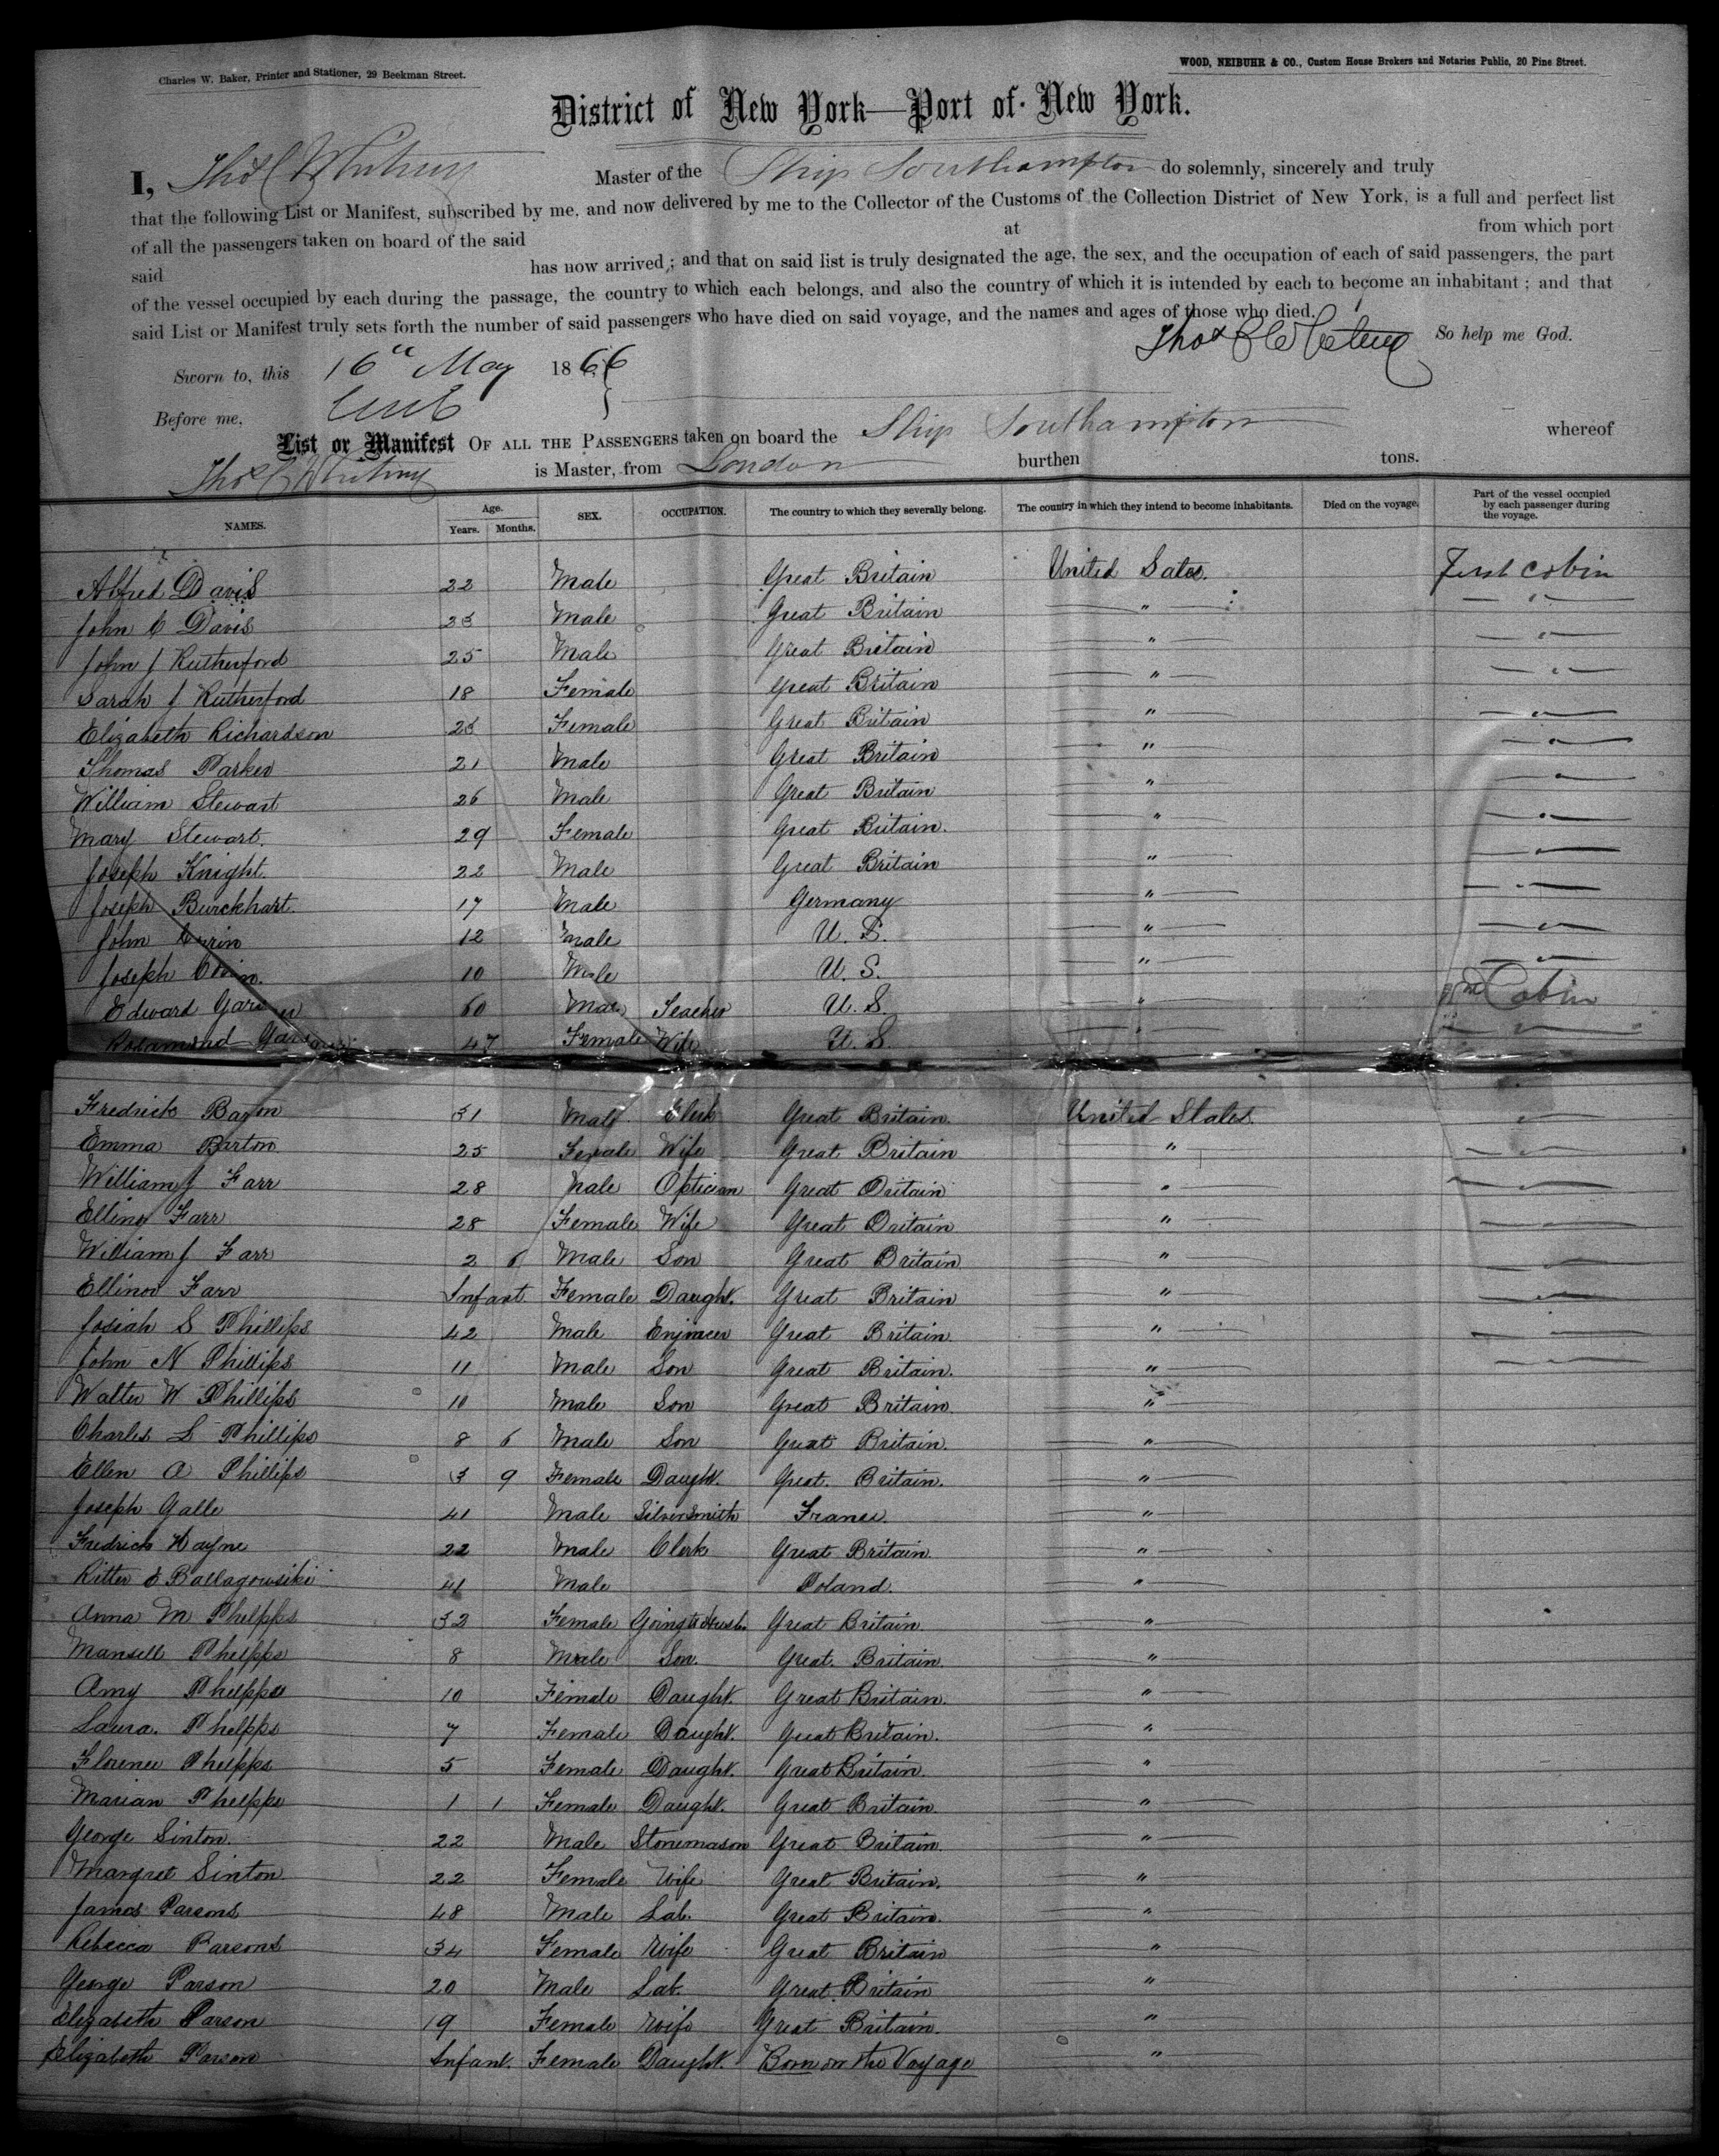 Charles W. Baker, Printer and Stationer, 29 Beekman Street.
WOOD, NEIBUHR & CO., Custom House Brokers and Notaries Public, 20 Pine Street.
District of New York—Port of New York.
I, Thos C Whiting Master of the Ship Southampton do solemnly, sincerely and truly
that the following List or Manifest, subscribed by me, and now delivered by me to the Collector of the Customs of the Collection District of New York, is a full and perfect list
of all the passengers taken on board of the said at from which port
said has now arrived; and that on said list is truly designated the age, the sex, and the occupation of each of said passengers, the part
of the vessel occupied by each during the passage, the country to which each belongs, and also the country of which it is intended by each to become an inhabitant; and that
said List or Manifest truly sets forth the number of said passengers who have died on said voyage, and the names and ages of those who died.
Thos C Whiting So help me God.
Sworn to, this 16th May 1866
Before me,
List or Manifest OF ALL THE PASSENGERS taken on board the Ship Southampton whereof
Thos C Whiting is Master, from London burthen tons.
NAMES. Age. Years. Months. SEX. OCCUPATION. The country to which they severally belong. The country in which they intend to become inhabitants. Died on the voyage. Part of the vessel occupied by each passenger during the voyage.
Alfred Davis 22 Male Great Britain United Sates. First Cabin
John C Davis 23 Male Great Britain " "
John J Rutherford 25 Male Great Britain " "
Sarah J Rutherford 18 Female Great Britain " "
Elizabeth Richardson 23 Female Great Britain " "
Thomas Parker 21 Male Great Britain " "
William Stewart 26 Male Great Britain " "
Mary Stewart. 29 Female Great Britain. " "
Joseph Knight. 22 Male Great Britain " "
Joseph Burckhart. 17 Male Germany " "
John 12 Male U. S. " "
Joseph 10 Male U. S. " "
Edward 60 Male Teacher U. S. " Cabin
Rosamond 47 Female Wife U. S. " "
Fredrick 31 Male Clerk Great Britain. United States. "
Emma Barton 25 Female Wife Great Britain " "
William J Farr 28 Male Optician Great Britain " "
Ellinor Farr 28 Female Wife Great Britain " "
William J Farr 2 6 Male Son Great Britain " "
Ellinor Farr Infant Female Daught. Great Britain " "
Josiah S Phillips 42 Male Enjineer Great Britain. " "
John N Phillips 11 Male Son Great Britain. " "
Walter W Phillips 10 Male Son Great Britain. "
Charles L Phillips 8 6 Male Son Great Britain. "
Ellen A Phillips 3 9 Female Daught. Great. Britain. "
Joseph Galle 41 Male Silversmith France. "
Fredrick Hayne 22 Male Clerk Great Britain. "
Ritter E Ballagowsiki 41 Male Poland. "
Anna M Phelpps 32 Female Going to Husb. Great Britain. "
Mansell Phelpps 8 Male Son. Great. Britain. "
Amy Phelpps 10 Female Daught. Great Britain. "
Laura. Phelpps 7 Female Daught. Great Britain. "
Florence Phelpps 5 Female Daught. Great Britain. "
Marian Phelpps 1 1 Female Daught. Great Britain. "
George Sinton. 22 Male Stonemason Great Britain. "
Margret Sinton 22 Female Wife Great Britain. "
James Parsons 48 Male Lab. Great Britain. "
Rebecca Parsons 34 Female Wife Great Britain "
George Parson 20 Male Lab. Great Britain "
Elizabeth Parson 19 Female Wife Great Britain. "
Elizabeth Parson Infant. Female Daught. Born on the Voyage "